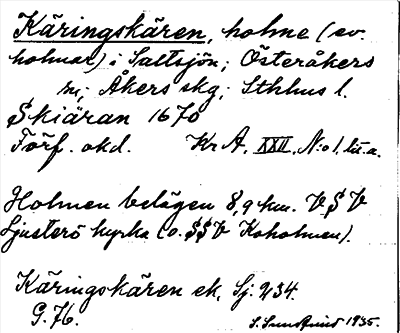 Käringskären, holme (ev.
holmar) i Saltsjön; Österåkers
sn; Åkers skg; Sthlms l.
Skiäran 1670
Förf. okd. Kr A. XXII. N:o 1. lit. a.
Holmen belägen 8,9 km. V S V
Ljusterö kyrka (o. SSV Koholmen).
Käringskären ek. Sj. 234.
G. 76. 1935.